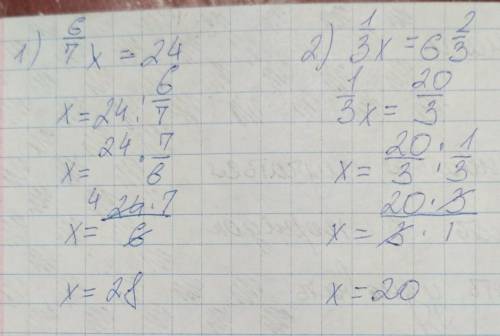 1) 6/7 x = 24
x = 24 : 6/7
x = 24 · 7/6
x = 4 24 · 7 / 6
x = 28
2) 1/3 x = 6 2/3
1/3 x = 20/3
x = 20/3 : 1/3
x = 20 · 3 / 3 · 1
x = 20